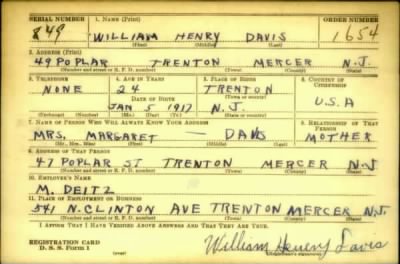 SERIAL NUMBER 1. NAME (Print) ORDER NUMBER
849 WILLIAM HENRY DAVIS 1654
(First) (Middle) (Last)
2. ADDRESS (Print)
49 POPLAR TRENTON MERCER N.J.
(Number and street or R. F. D. number) (Town) (County) (State)
3. TELEPHONE 4. AGE IN YEARS 5. PLACE OF BIRTH 6. COUNTRY OF CITIZENSHIP
NONE 24 TRENTON
(Town or county)
DATE OF BIRTH U.S.A
JAN 5 1917 N.J.
(Exchange) (Number) (Mo.) (Day) (Yr.) (State or country)
7. NAME OF PERSON WHO WILL ALWAYS KNOW YOUR ADDRESS 8. RELATIONSHIP OF THAT PERSON
MRS. MARGARET — DAVIS MOTHER
(Mr., Mrs., Miss) (First) (Middle) (Last)
9. ADDRESS OF THAT PERSON
47 POPLAR ST TRENTON MERCER N.J
(Number and street or R. F. D. number) (Town) (County) (State)
10. EMPLOYER'S NAME
M. DEITZ
11. PLACE OF EMPLOYMENT OR BUSINESS
541 N. CLINTON AVE TRENTON MERCER N.J.
(Number and street or R. F. D. number) (Town) (County) (State)
I AFFIRM THAT I HAVE VERIFIED ABOVE ANSWERS AND THAT THEY ARE TRUE.
REGISTRATION CARD
D. S. S. Form 1 (over) William Henry Davis
(Registrant's signature)